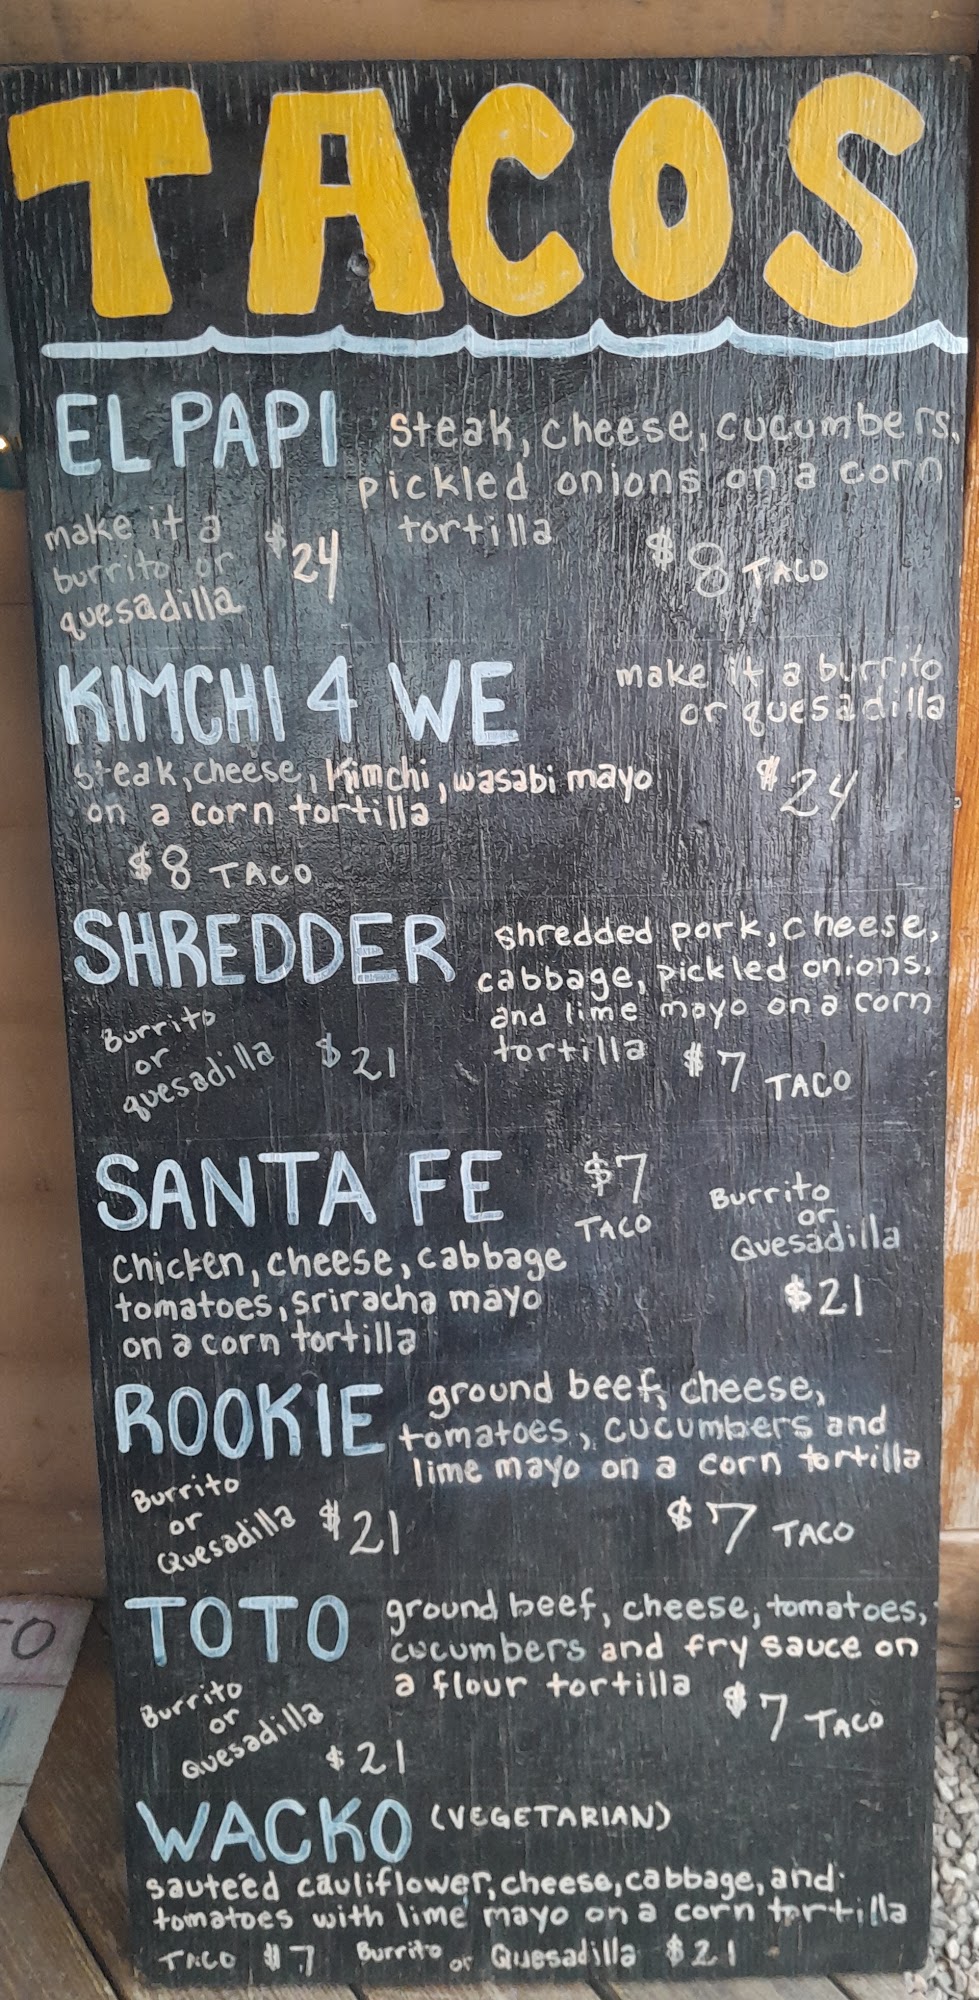 TACOS
EL PAPI
steak, cheese, cucumbers,
pickled onions on a corn
tortilla
make it a
burrito or
quesadilla
$24
$8 TACO
KIMCHI 4 WE
make it a burrito
or quesadilla
$24
steak, cheese, Kimchi, wasabi mayo
on a corn tortilla
$8 TACO
SHREDDER
shredded pork, cheese,
cabbage, pickled onions,
and lime mayo on a corn
tortilla
Burrito
or
quesadilla
$21
$7 TACO
SANTA FE
$7
TACO
Burrito
or
Quesadilla
$21
Chicken, cheese, cabbage
tomatoes, sriracha mayo
on a corn tortilla
ROOKIE
ground beef, cheese,
tomatoes, cucumbers and
lime mayo on a corn tortilla
Burrito
or
Quesadilla
$21
$7 TACO
TOTO
ground beef, cheese, tomatoes,
cucumbers and fry sauce on
a flour tortilla
Burrito
or
Quesadilla
$21
$7 TACO
WACKO (VEGETARIAN)
sauteéd cauliflower, cheese, cabbage, and
tomatoes with lime mayo on a corn tortilla
TACO $7 Burrito or Quesadilla $21